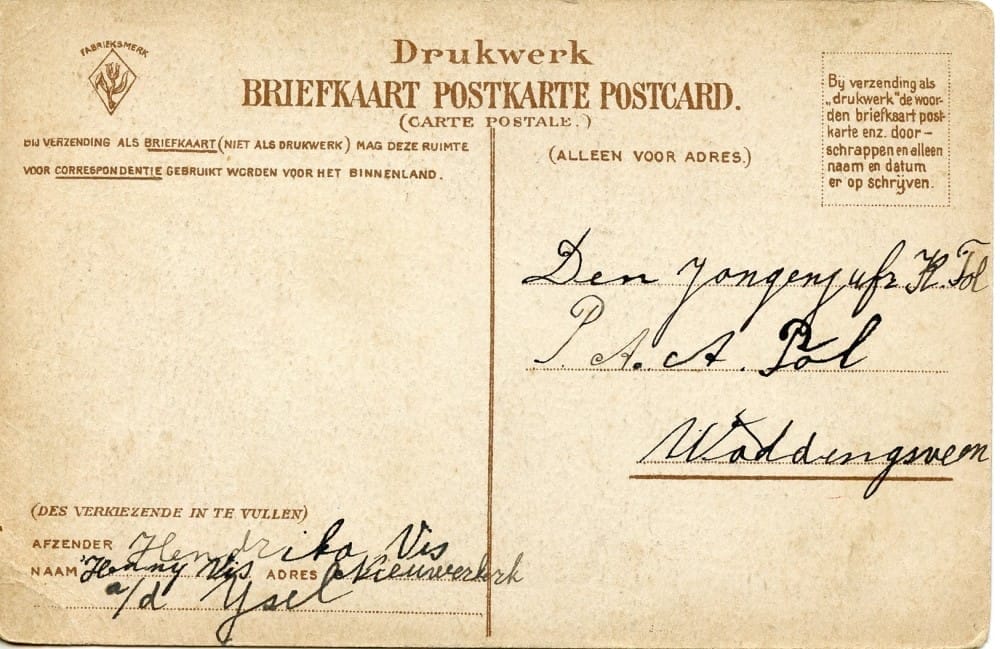 FABRIEKSMERK
Drukwerk
BRIEFKAART POSTKARTE POSTCARD.
(CARTE POSTALE.)
BIJ VERZENDING ALS BRIEFKAART (NIET ALS DRUKWERK) MAG DEZE RUIMTE
VOOR CORRESPONDENTIE GEBRUIKT WORDEN VOOR HET BINNENLAND.
(ALLEEN VOOR ADRES.)
Bij verzending als
„drukwerk" de woor-
den briefkaart post-
karte enz. door-
schrappen en alleen
naam en datum
er op schrijven.
Den Jongenjufr K. Tol
P. A. A. Pol
Woddengsveen
(DES VERKIEZENDE IN TE VULLEN)
AFZENDER Hendrika Vis
NAAM Henny Vis ADRES Nieuwerkerk
a/d Ysel